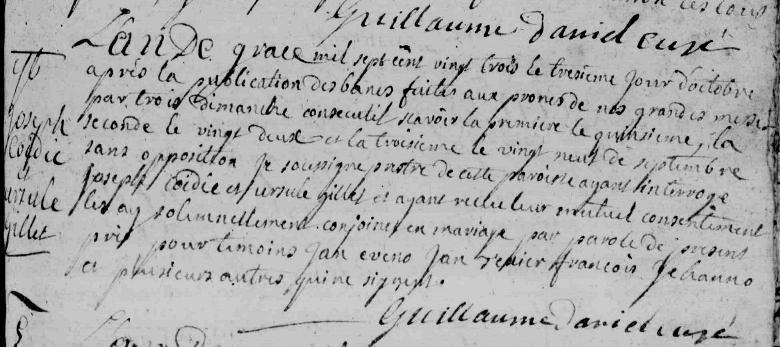 Guillaume daniel curé
Lan De grace mil sept cent vingt trois le tresieme jour doctobre
après la publication des bancs faites aux prones de nos grandes messes
par trois dimanche consecutif scavoir la premiere le quinsieme, la
seconde le vingt deux et la troisieme le vingt neuf de septembre
sans opposition Je soussigne pretre de cette paroisse ayant interroge
joseph Coïdic et ursule gillet et ayant receu leur mutuel consentiment
les ay solennellement conjoinct en mariage par parole de present
pris pour temoins Jan eveno Jan françois Jehanno
et plusieurs autres qui ne signent.
Guillaume daniel curé
joseph
Coïdic
ursule
gillet